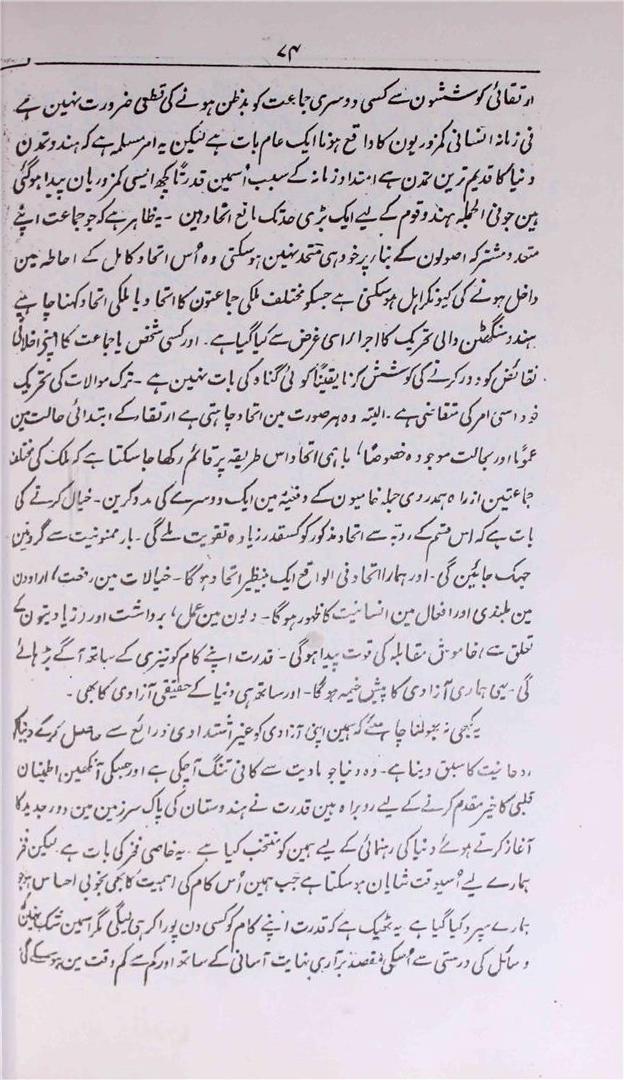 ۷۴
ارتقائی کوششون سے کسی دوسری جماعت کو بدظن ہونے کی قطعی ضرورت نہین ہے
فی زمانہ انسانی کمزوریون کا واقع ہونا ایک عام بات ہے لیکن یہ امر مسلمہ ہے کہ ہندو تمدن
دنیا کا قدیم ترین تمدن ہے امتداد زمانہ کے سبب اُسمین قدرتاً کچھ ایسی کمزوریان پیدا ہوگئی
ہین جو فی الجملہ ہندو قوم کے لیے ایک بڑی حد تک مانع اتحاد ہین - یہ ظاہر ہے کہ جو جماعت اپنے
متحد و مشترکہ اصولون کے بنا پر خود ہی متحد نہین ہوسکتی وہ اُس اتحاد کامل کے احاطہ مین
داخل ہونے کی کیونکر اہل ہوسکتی ہے جسکو مختلف ملکی جماعتون کا اتحاد یا ملکی اتحاد کہنا چاہیے
ہندو سنگھٹن والی تحریک کا اجرا اسی غرض سے کیا گیا ہے - اور کسی شخص یا جماعت کا اپنے اخلاقی
نقائض کو دور کرنے کی کوشش کرنا یقیناً کوئی گناہ کی بات نہین ہے - ترک موالات کی تحریک
خود اسی امر کی متقاضی ہے - البتہ وہ ہر صورت مین اتحاد چاہتی ہے ارتقاء کے ابتدائی حالت مین
عموماً اور بحالت موجودہ خصوصاً، باہمی اتحاد اس طریقہ پر قائم رکھا جا سکتا ہے کہ ملک کی مختلف
جماعتین از راہ ہمدردی جملہ خامیون کے دفعیہ مین ایک دوسرے کی مدد کرین - خیال کرنے کی
بات ہے کہ اس قسم کے رویہ سے اتحاد مذکور کو کسقدر زیادہ تقویت ملے گی - بار ممنونیت سے گردنین
جھک جائین گی - اور ہمارا اتحاد فی الواقع ایک بینظیر اتحاد ہوگا - خیالات مین رفعت، ارادون
مین بلندی اور افعال مین انسانیت کا ظہور ہوگا - دلون مین عمل، برداشت اور زیادتیون کے
تعلق سے، خاموش مقابلہ کی قوت پیدا ہوگی - قدرت اپنے کام کو تیزی کے ساتھ آگے بڑہائے
گی - یہی ہماری آزادی کا پیش خیمہ ہوگا - اور ساتھ ہی دنیا کے حقیقی آزادی کا بھی -
یہ کبھی نہ بھولنا چاہیئے کہ ہمین اپنی آزادی کو غیر اشتدادی ذرائع سے حاصل کرکے دنیا کو
روحانیت کا سبق دینا ہے - وہ دنیا جو مادیت سے کافی تنگ آچکی ہے اور جسکی آنکھین اطمینان
قلبی کا خیر مقدم کرنے کے لیے روبراہ ہین قدرت نے ہندوستان کی پاک سرزمین مین دور جدید کا
آغاز کرتے ہوئے دنیا کی رہنمائی کے لیے ہمین کو منتخب کیا ہے - یہ خاصی فخر کی بات ہے لیکن فخر
ہمارے لیے اُسیوقت شایان ہوسکتا ہے جب ہمین اُس کام کی اہمیت کا بھی بخوبی احساس ہو جو
ہمارے سپرد کیا گیا ہے یہ ٹھیک ہے کہ قدرت اپنے کام کو کسی دن پورا کر ہی لیگی مگر اسمین شک نہین
وسائل کی درستی سے اُسکی مقصد برآری نہایت آسانی کے ساتھ اور کم سے کم وقت مین ہوسکے گی